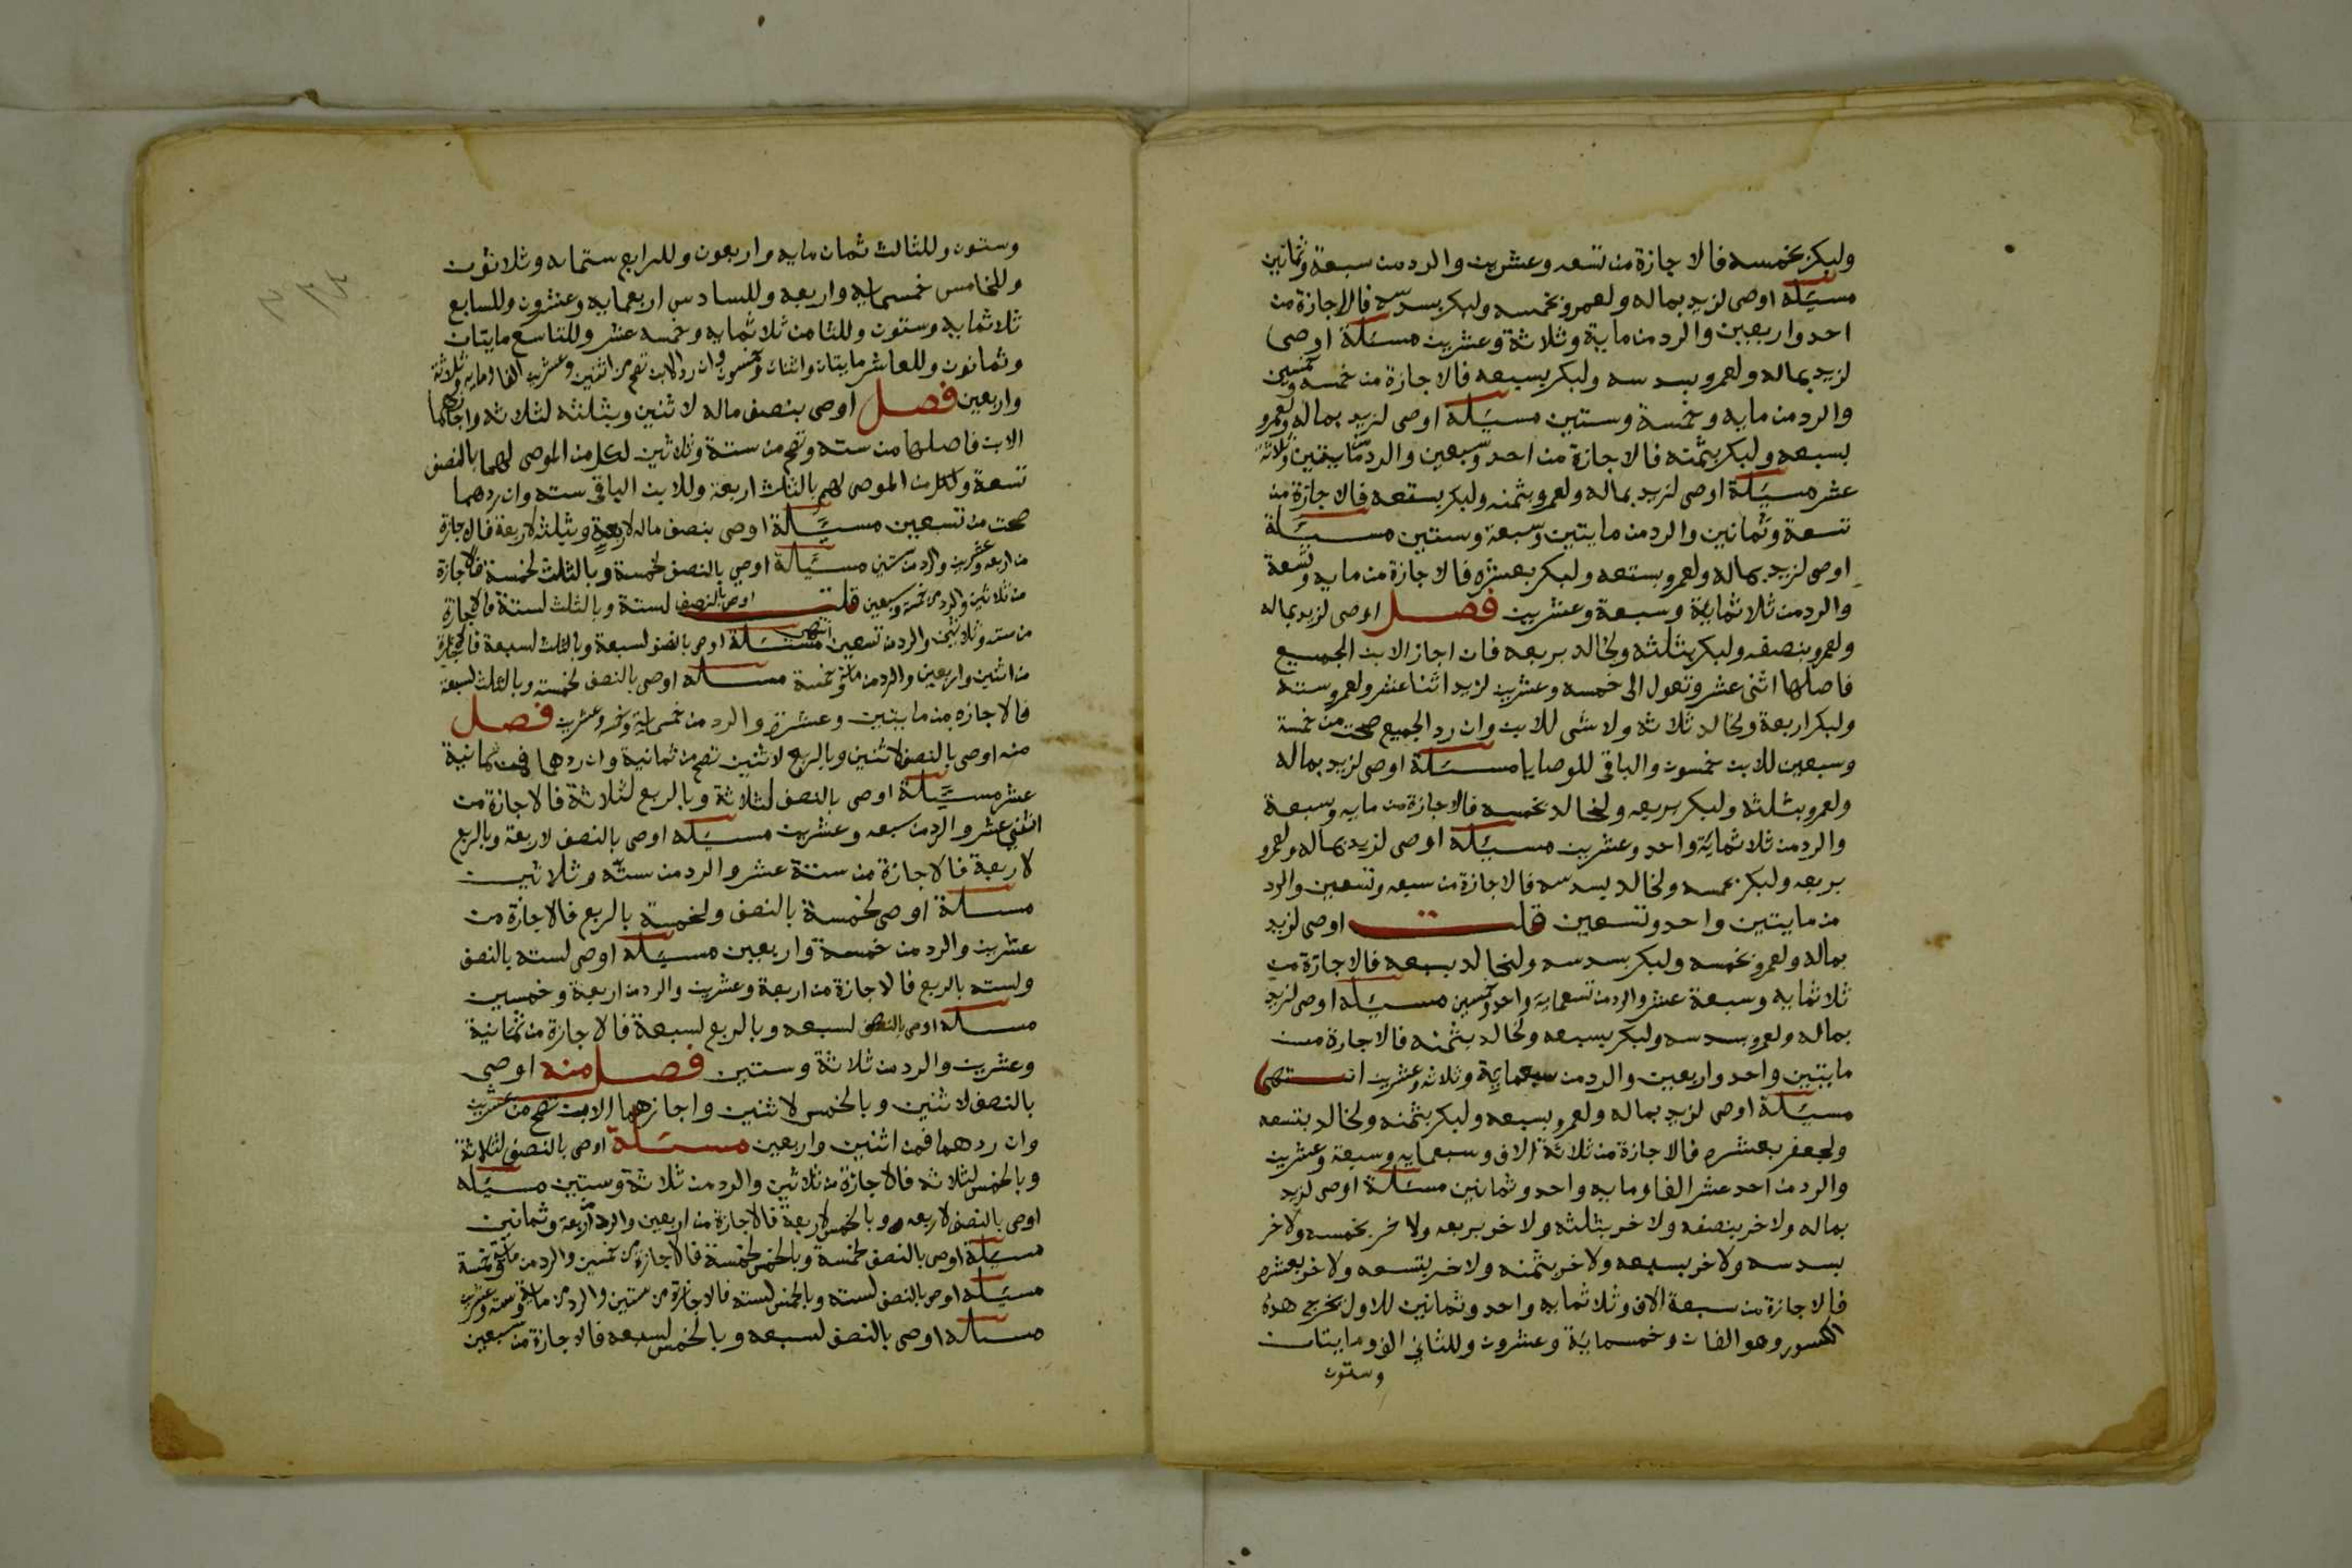 وليكر بخمسه فالاجازة من تسعه وعشرين والرد من سبعة وثمانين
مسئلة اوصى لزيد بماله ولعمرو بخمسه ولبكر بسدسه فالاجازة من
احد واربعين والرد من ماية وثلاثة وعشرين مسئلة اوصى
لزيد بماله ولعمرو بسدسه ولبكر بسبعه فالاجازة من خمسه وخمسين
والرد من مايه وخمسة وستين مسئلة اوصى لزيد بماله ولعمرو
بسبعه ولبكر بثمنه فالاجازة من احد وسبعين والرد من مايتين وثلاثة
عشر مسئلة اوصى لزيد بماله ولعمرو بثمنه ولبكر بتسعه فالاجازة من
تسعة وثمانين والرد من مايتين وسبعة وستين مسئلة
اوصى لزيد بماله ولعمرو بتسعه ولبكر بعشره فالاجازة من مايه وتسعة
والرد من ثلاثماية وسبعة وعشرين فصل اوصى لزيد بماله
ولعمرو بنصفه ولبكر بثلثه ولخالد بربعه فان اجاز الابن الجميع
فاصلها اثنى عشر وتعول الى خمسه وعشرين لزيد اثنا عشر ولعمرو سته
ولبكر اربعة ولخالد ثلاثه ولا شى للابن وان رد الجميع صحت من خمسة
وسبعين للابن خمسون والباقى للوصايا مسئلة اوصى لزيد بماله
ولعمرو بثلثه ولبكر بربعه ولخالد بخمسه فالاجازة من مايه وسبعة
والرد من ثلاثماية واحد وعشرين مسئلة اوصى لزيد بماله ولعمرو
بربعه ولبكر بخمسه ولخالد بسدسه فالاجازة من سبعه وتسعين والرد
من مايتين واحد وتسعين قلت اوصى لزيد
بماله ولعمرو بخمسه ولبكر بسدسه ولخالد بسبعه فالاجازة من
ثلاثمايه وسبعة عشر والرد من تسعماية واحد وخمسين مسئلة اوصى لزيد
بماله ولعمرو بسدسه ولبكر بسبعه ولخالد بثمنه فالاجازة من
مايتين واحد واربعين والرد من سبعماية وثلاثه وعشرين انتهى
مسئلة اوصى لزيد بماله ولعمرو بسبعه ولبكر بثمنه ولخالد بتسعه
ولجعفر بعشره فالاجازة من ثلاثة الاف وسبعمايه وسبعة وعشرين
والرد من احد عشر الفا ومايه واحد وثمانين مسئلة اوصى لزيد
بماله ولاخر بنصفه ولاخر بثلثه ولاخر بربعه ولاخر بخمسه ولاخر
بسدسه ولاخر بسبعه ولاخر بثمنه ولاخر بتسعه ولاخر بعشره
فالاجازة من سبعة الاف وثلاثمايه واحد وثمانين للاول مخرج هذه
الكسور وهو الفان وخمسماية وعشرون وللثانى الف ومايتان
وستون
وستون وللثالث ثمان مايه واربعون وللرابع ستمايه وثلاثون
وللخامس خمسمايه واربعه وللسادس اربعمايه وعشرون وللسابع
ثلاثمايه وستون وللثامن ثلاثمايه وخمسه عشر وللتاسع مايتان
وثمانون وللعاشر مايتان واثنان وخمسون وان رد الابن تصح من اثنين وعشرين الفا ومايه وثلاثة
واربعين فصل اوصى بنصف ماله لاثنين وبثلثه لثلاثه واجازهما
الابن فاصلها من سته وتصح من ستة وثلاثين لكل من الموصى لهما بالنصف
تسعة ولكل من الموصى لهم بالثلث اربعة وللابن الباقى سته وان ردهما
صحت من تسعين مسئلة اوصى بنصف ماله لاربعة وبثلثه لاربعة فالاجازة
من اربعه وعشرين والرد من ستين مسئلة اوصى بالنصف لخمسة وبالثلث لخمسة فالاجازة
من ثلاثين والرد من خمسة وسبعين قلت اوصى بالنصف لستة وبالثلث لستة فالاجازة
من سته وثلاثين والرد من تسعين انتهى مسئلة اوصى بالنصف لسبعة وبالثلث لسبعة فالاجازة
من اثنين واربعين والرد من ماية وخمسة مسئله اوصى بالنصف لخمسة وبالثلث لسبعة
فالاجازه من مايتين وعشرة والرد من خمسماية وخمسة وعشرين فصل
منه اوصى بالنصف لاثنين وبالربع لاثنين تصح من ثمانية وان ردهما فمن ثمانية
عشر مسئلة اوصى بالنصف لثلاثة وبالربع لثلاثة فالاجازة من
اثنى عشر والرد من سبعه وعشرين مسئله اوصى بالنصف لاربعة وبالربع
لاربعة فالاجازة من ستة عشر والرد من سته وثلاثين
مسئلة اوصى لخمسة بالنصف ولخمسة بالربع فالاجازة من
عشرين والرد من خمسة واربعين مسئله اوصى لسته بالنصف
ولسته بالربع فالاجازة من اربعة وعشرين والرد من اربعة وخمسين
مسئله اوصى بالنصف لسبعه وبالربع لسبعة فالاجازة من ثمانية
وعشرين والرد من ثلاثة وستين فصل منه اوصى
بالنصف لاثنين وبالخمس لاثنين واجازهما الابن تصح من عشرين
وان ردهما فمن اثنين واربعين مسئلة اوصى بالنصف لثلاثة
وبالخمس لثلاثه فالاجازة من ثلاثين والرد من ثلاثة وستين مسئله
اوصى بالنصف لاربعه وبالخمس لاربعة فالاجازة من اربعين والرد من اربعة وثمانين
مسئلة اوصى بالنصف لخمسة وبالخمس لخمسة فالاجازة من خمسين والرد من ماية وخمسة
مسئله اوصى بالنصف لسته وبالخمس لسته فالاجازة من ستين والرد من ماية وستة وعشرين
مسئله اوصى بالنصف لسبعه وبالخمس لسبعه فالاجازة من سبعين